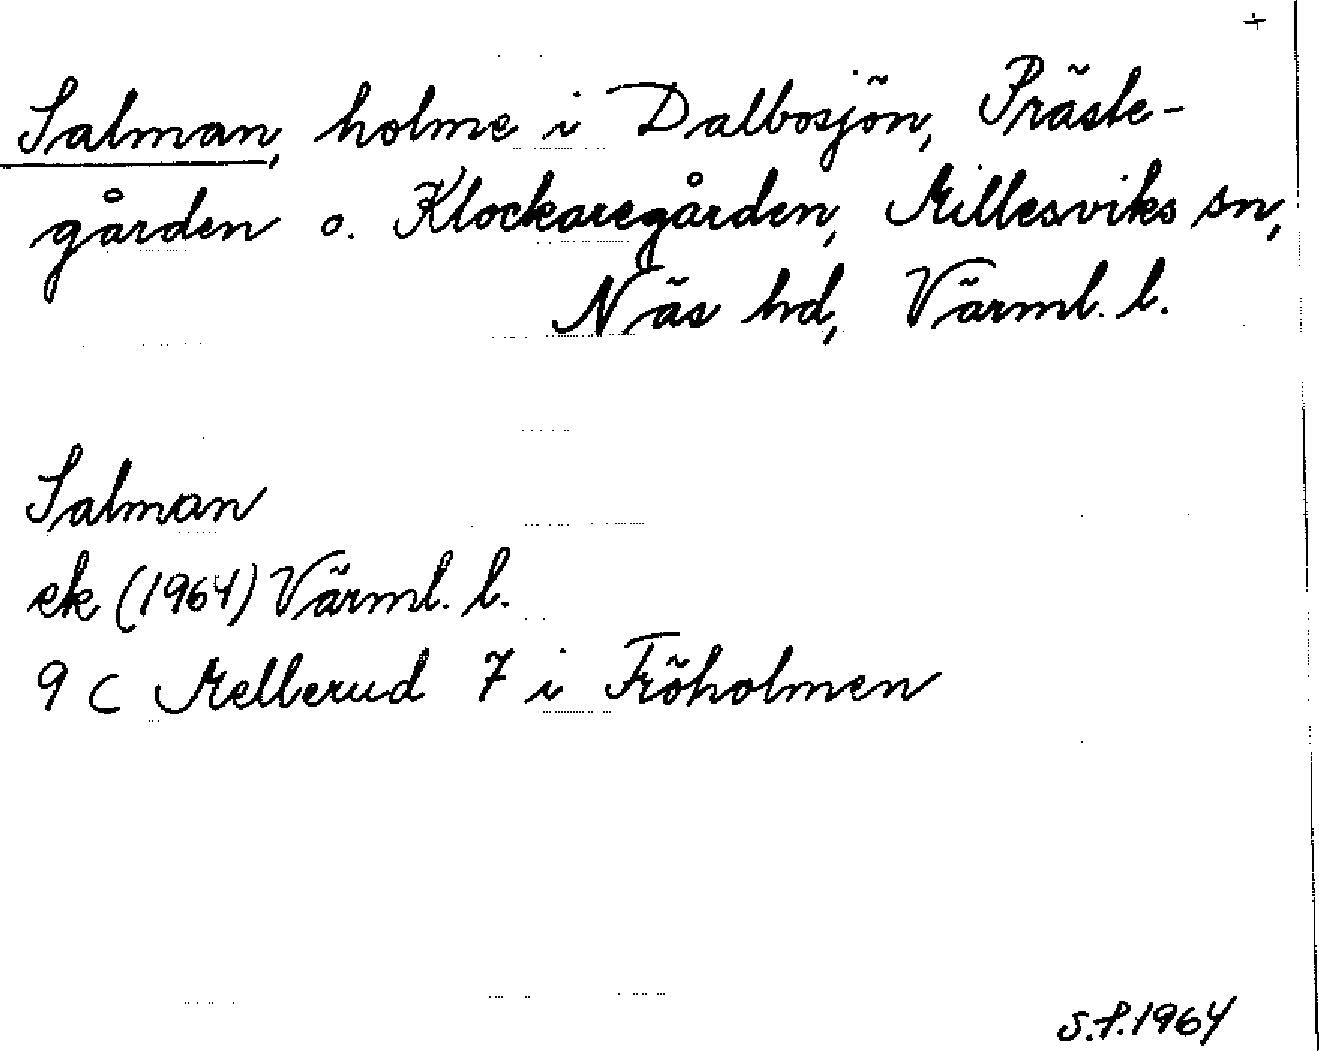 +
Salman, holme i Dalbosjön, Präste-
gården o. Klockaregården, Millesviks sn,
Näs hd, Värml. l.
Salman
ek (1964) Värml. l.
9 C Mellerud 7 i Fröholmen
S.P.1964